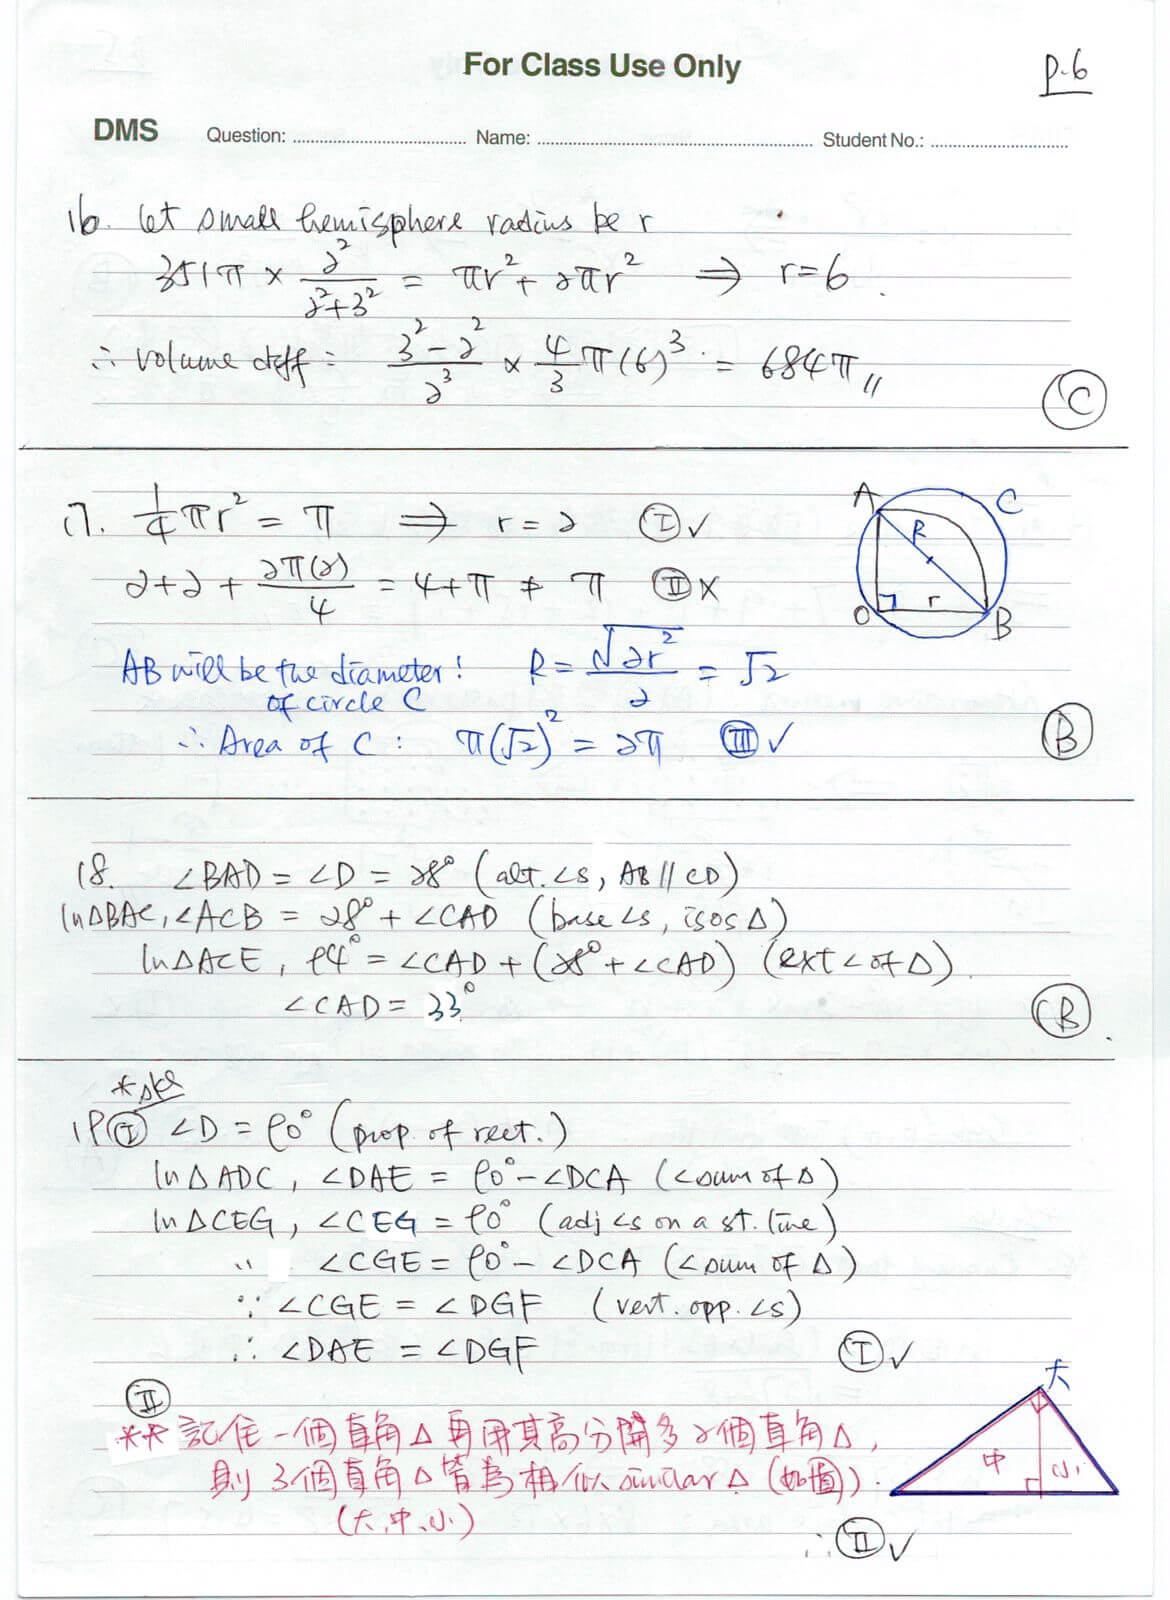 For Class Use Only
P.6
DMS Question: Name: Student No.:
16. let small hemisphere radius be r
351π × 2²/(2²+3²) = πr² + 2πr² ⇒ r=6.
∴ volume diff: (3²-2²)/2³ × 4/3 π(6)³ = 684π //
C
17. 1/4 πr² = π ⇒ r = 2 Ⓘ ✓
2+2+ 2π(2)/4 = 4+π ≠ π Ⓘⓘ ✗
AB will be the diameter! R = √(2r²)/2 = √2
of circle C
∴ Area of C: π(√2)² = 2π III ✓
B
A C R O r B
18. ∠BAD = ∠D = 28° (alt. ∠s, AB // CD)
In ΔBAC, ∠ACB = 28° + ∠CAD (base ∠s, isos Δ)
In ΔACE, 94° = ∠CAD + (28° + ∠CAD) (ext ∠ of Δ).
∠CAD = 33°
B
19 I ∠D = 90° (prop. of rect.)
In Δ ADC, ∠DAE = 90° - ∠DCA (∠sum of Δ)
In ΔCEG, ∠CEG = 90° (adj ∠s on a st. line)
" ∠CGE = 90° - ∠DCA (∠sum of Δ)
∵ ∠CGE = ∠DGF (vert. opp. ∠s)
∴ ∠DAE = ∠DGF I ✓
II
** 記住一個直角Δ再用其高分開多2個直角Δ,
則3個直角Δ皆為相似 similar Δ (如圖).
(大、中、小)
大 中 小
∴ II ✓